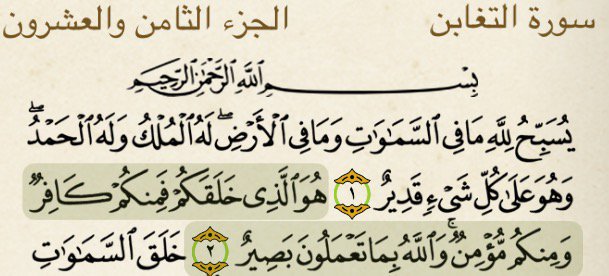 سورة التغابن الجزء الثامن والعشرون
بِسْمِ اللَّهِ الرَّحْمَٰنِ الرَّحِيمِ
يُسَبِّحُ لِلَّهِ مَا فِي السَّمَاوَاتِ وَمَا فِي الْأَرْضِ ۖ لَهُ الْمُلْكُ وَلَهُ الْحَمْدُ ۖ
وَهُوَ عَلَىٰ كُلِّ شَيْءٍ قَدِيرٌ ١ هُوَ الَّذِي خَلَقَكُمْ فَمِنكُمْ كَافِرٌ
وَمِنكُم مُّؤْمِنٌ ۚ وَاللَّهُ بِمَا تَعْمَلُونَ بَصِيرٌ ٢ خَلَقَ السَّمَاوَاتِ